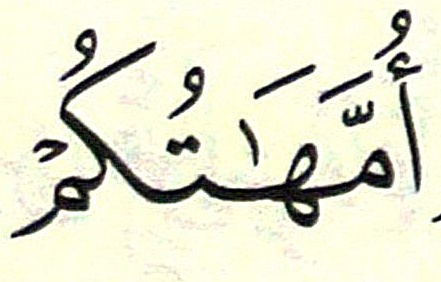 أُمَّهَـٰتُكُمْ